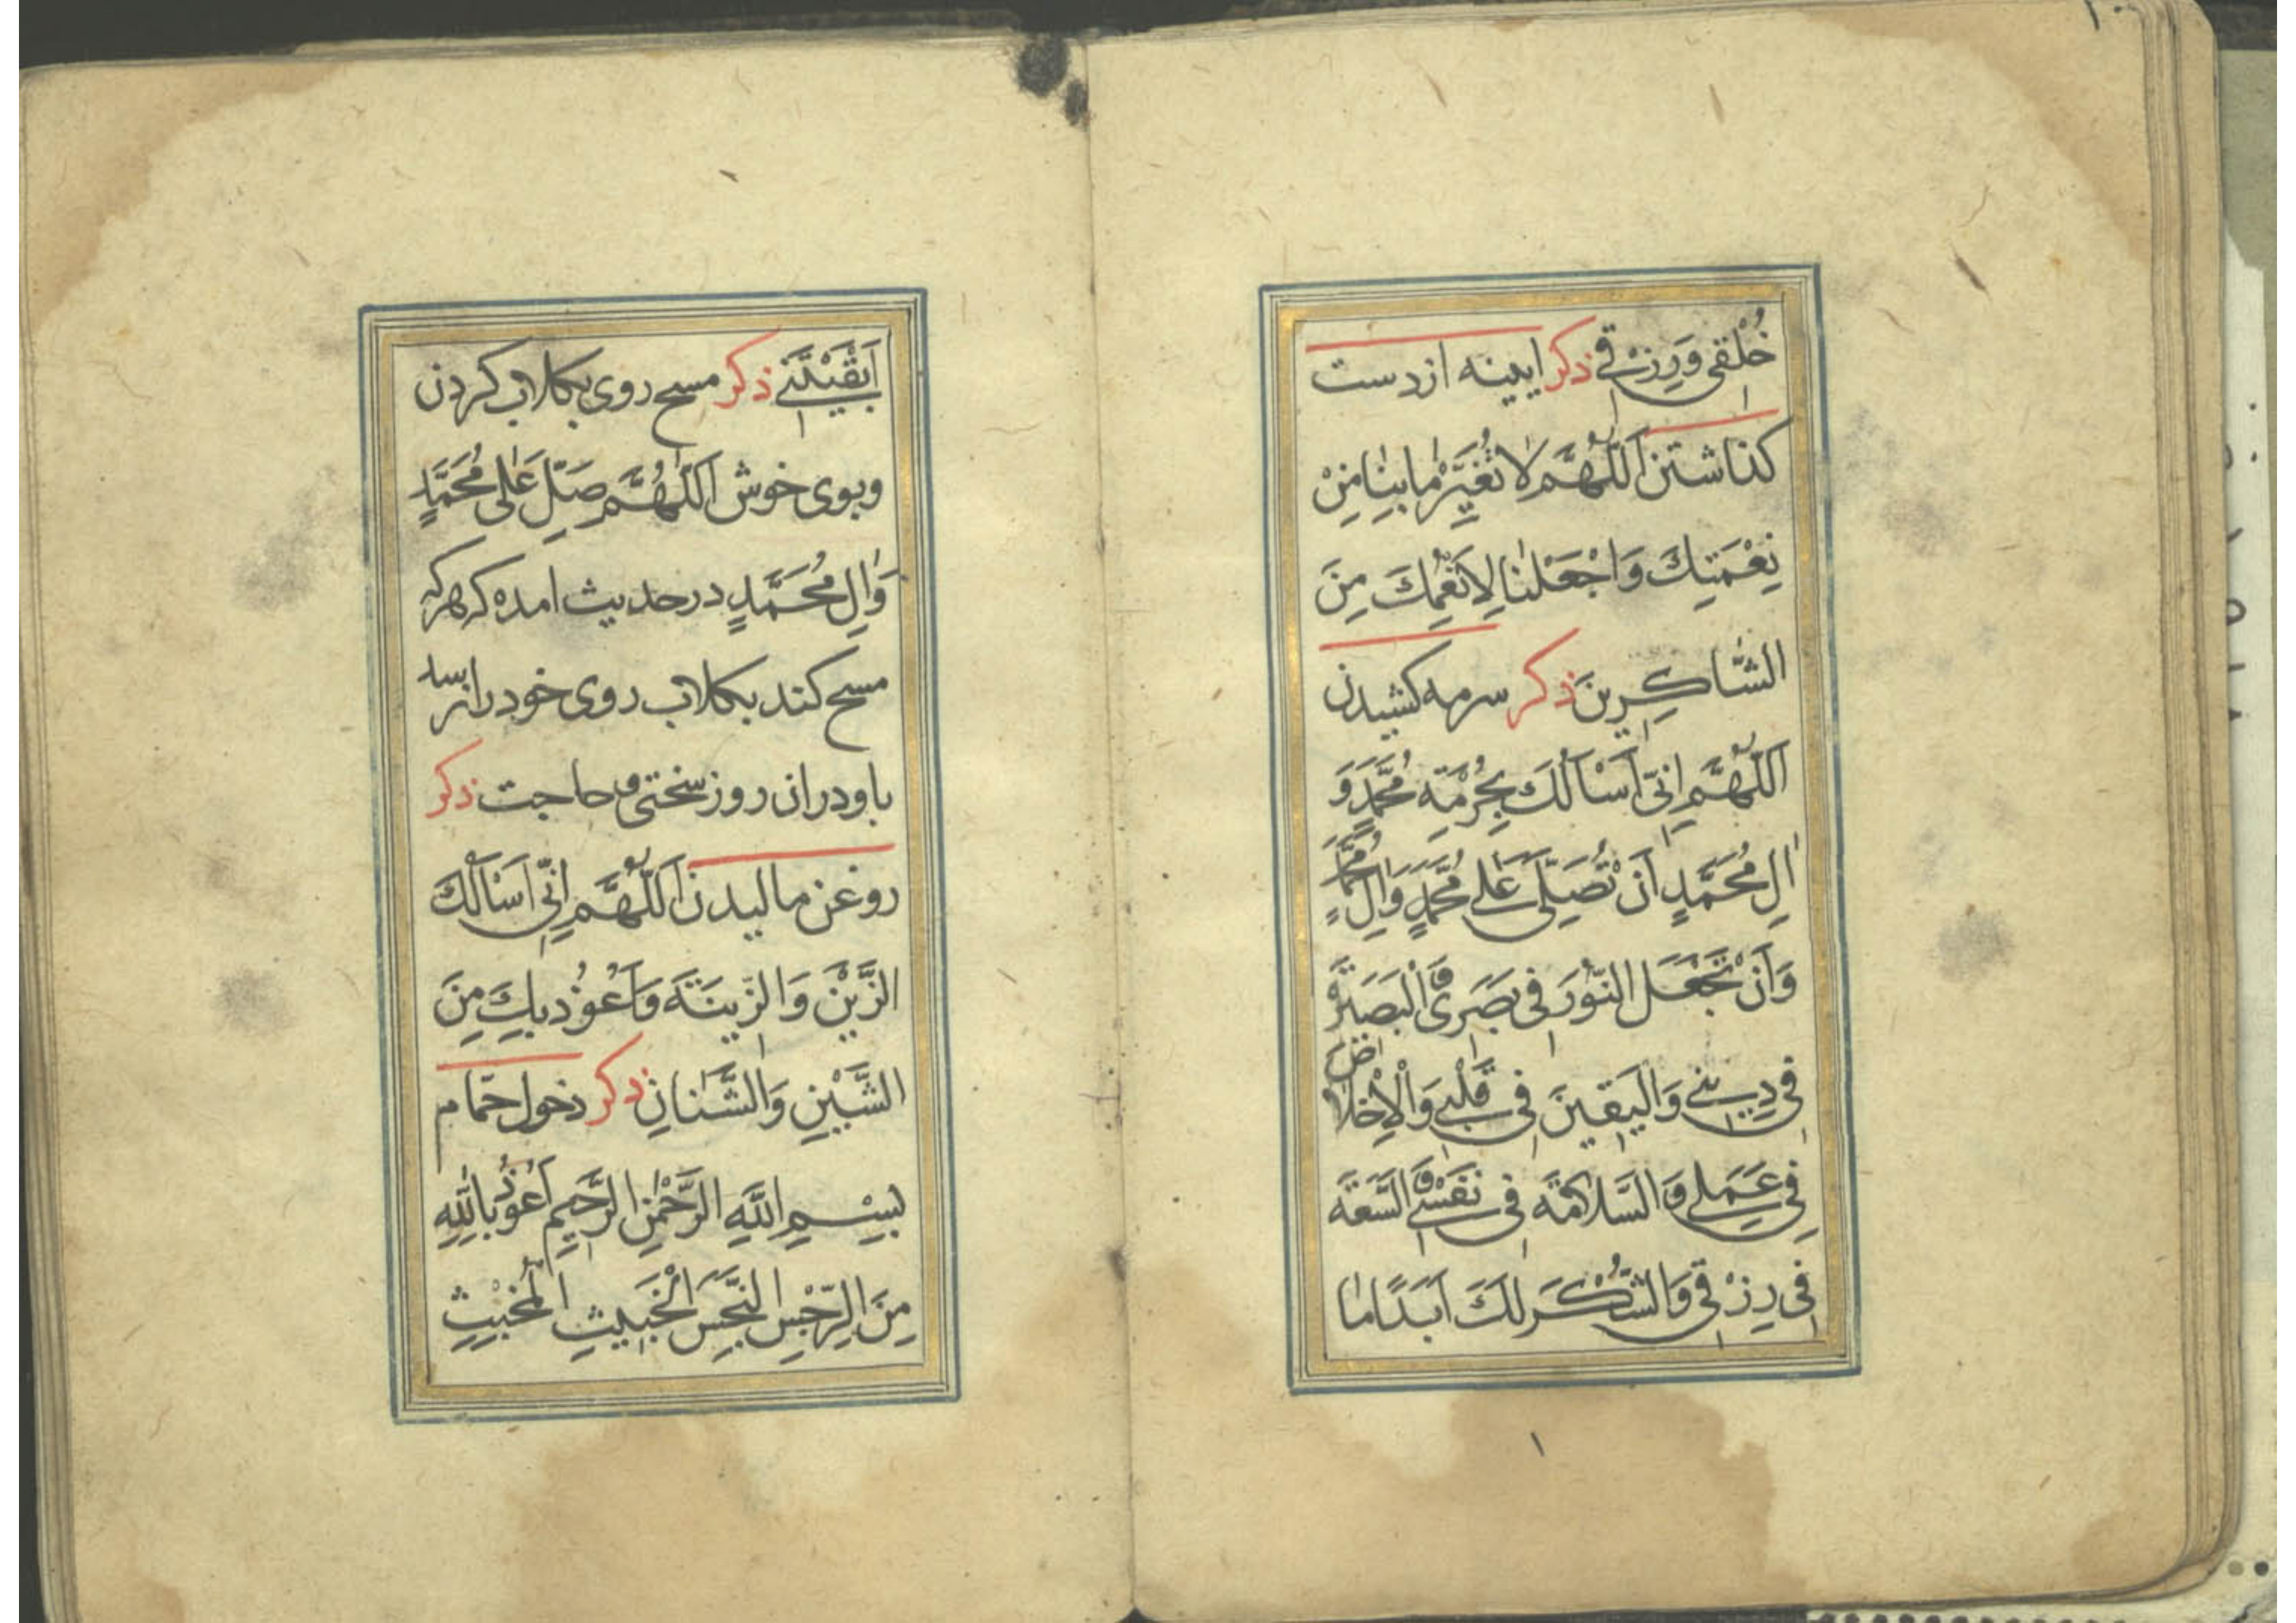 خُلْقِي وَرِزْقِي ذکر ایینه از دست
کذاشتن اَللّٰهُمَّ لَا تُغَيِّرْ مٰا بِنٰا مِنْ
نِعْمَتِكَ وَاجْعَلْنٰا لِاَنْعُمِكَ مِنَ
الشّٰاكِرِينَ ذکر سرمه کشیدن
اَللّٰهُمَّ اِنّي اَسْاَلُكَ بِحُرْمَةِ مُحَمَّدٍ وَ
اٰلِ مُحَمَّدٍ اَنْ تُصَلِّيَ عَلٰى مُحَمَّدٍ وَاٰلِ مُحَمَّدٍ
وَاَنْ تَجْعَلَ النُّورَ في بَصَري وَالْبَصيرَةَ
في دِيني وَالْيَقينَ في قَلْبي وَالْاِخْلاٰصَ
فِي عَمَلي وَالسَّلاٰمَةَ في نَفْسي وَالسَّعَةَ
في رِزْقي وَالشُّكْرَ لَكَ اَبَدًا مٰا
اَبْقَيْتَني ذکر مسح روی بکلاب کردن
وبوی خوش اَللّٰهُمَّ صَلِّ عَلٰى مُحَمَّدٍ
وَاٰلِ مُحَمَّدٍ در حدیث امده که هرکه
مسح کند بکلاب روی خود را نرسد
باو دران روز سختی و حاجت ذکر
روغن مالیدن اَللّٰهُمَّ اِنّي اَسْاَلُكَ
الزَّيْنَ وَالزّينَةَ وَاَعُوذُ بِكَ مِنَ
الشَّيْنِ وَالشَّنَاٰنِ ذکر دخول حمّام
بِسْمِ اللّٰهِ الرَّحْمٰنِ الرَّحيمِ اَعُوذُ بِاللّٰهِ
مِنَ الرِّجْسِ النَّجِسِ الْخَبيثِ الْمُخْبِثِ